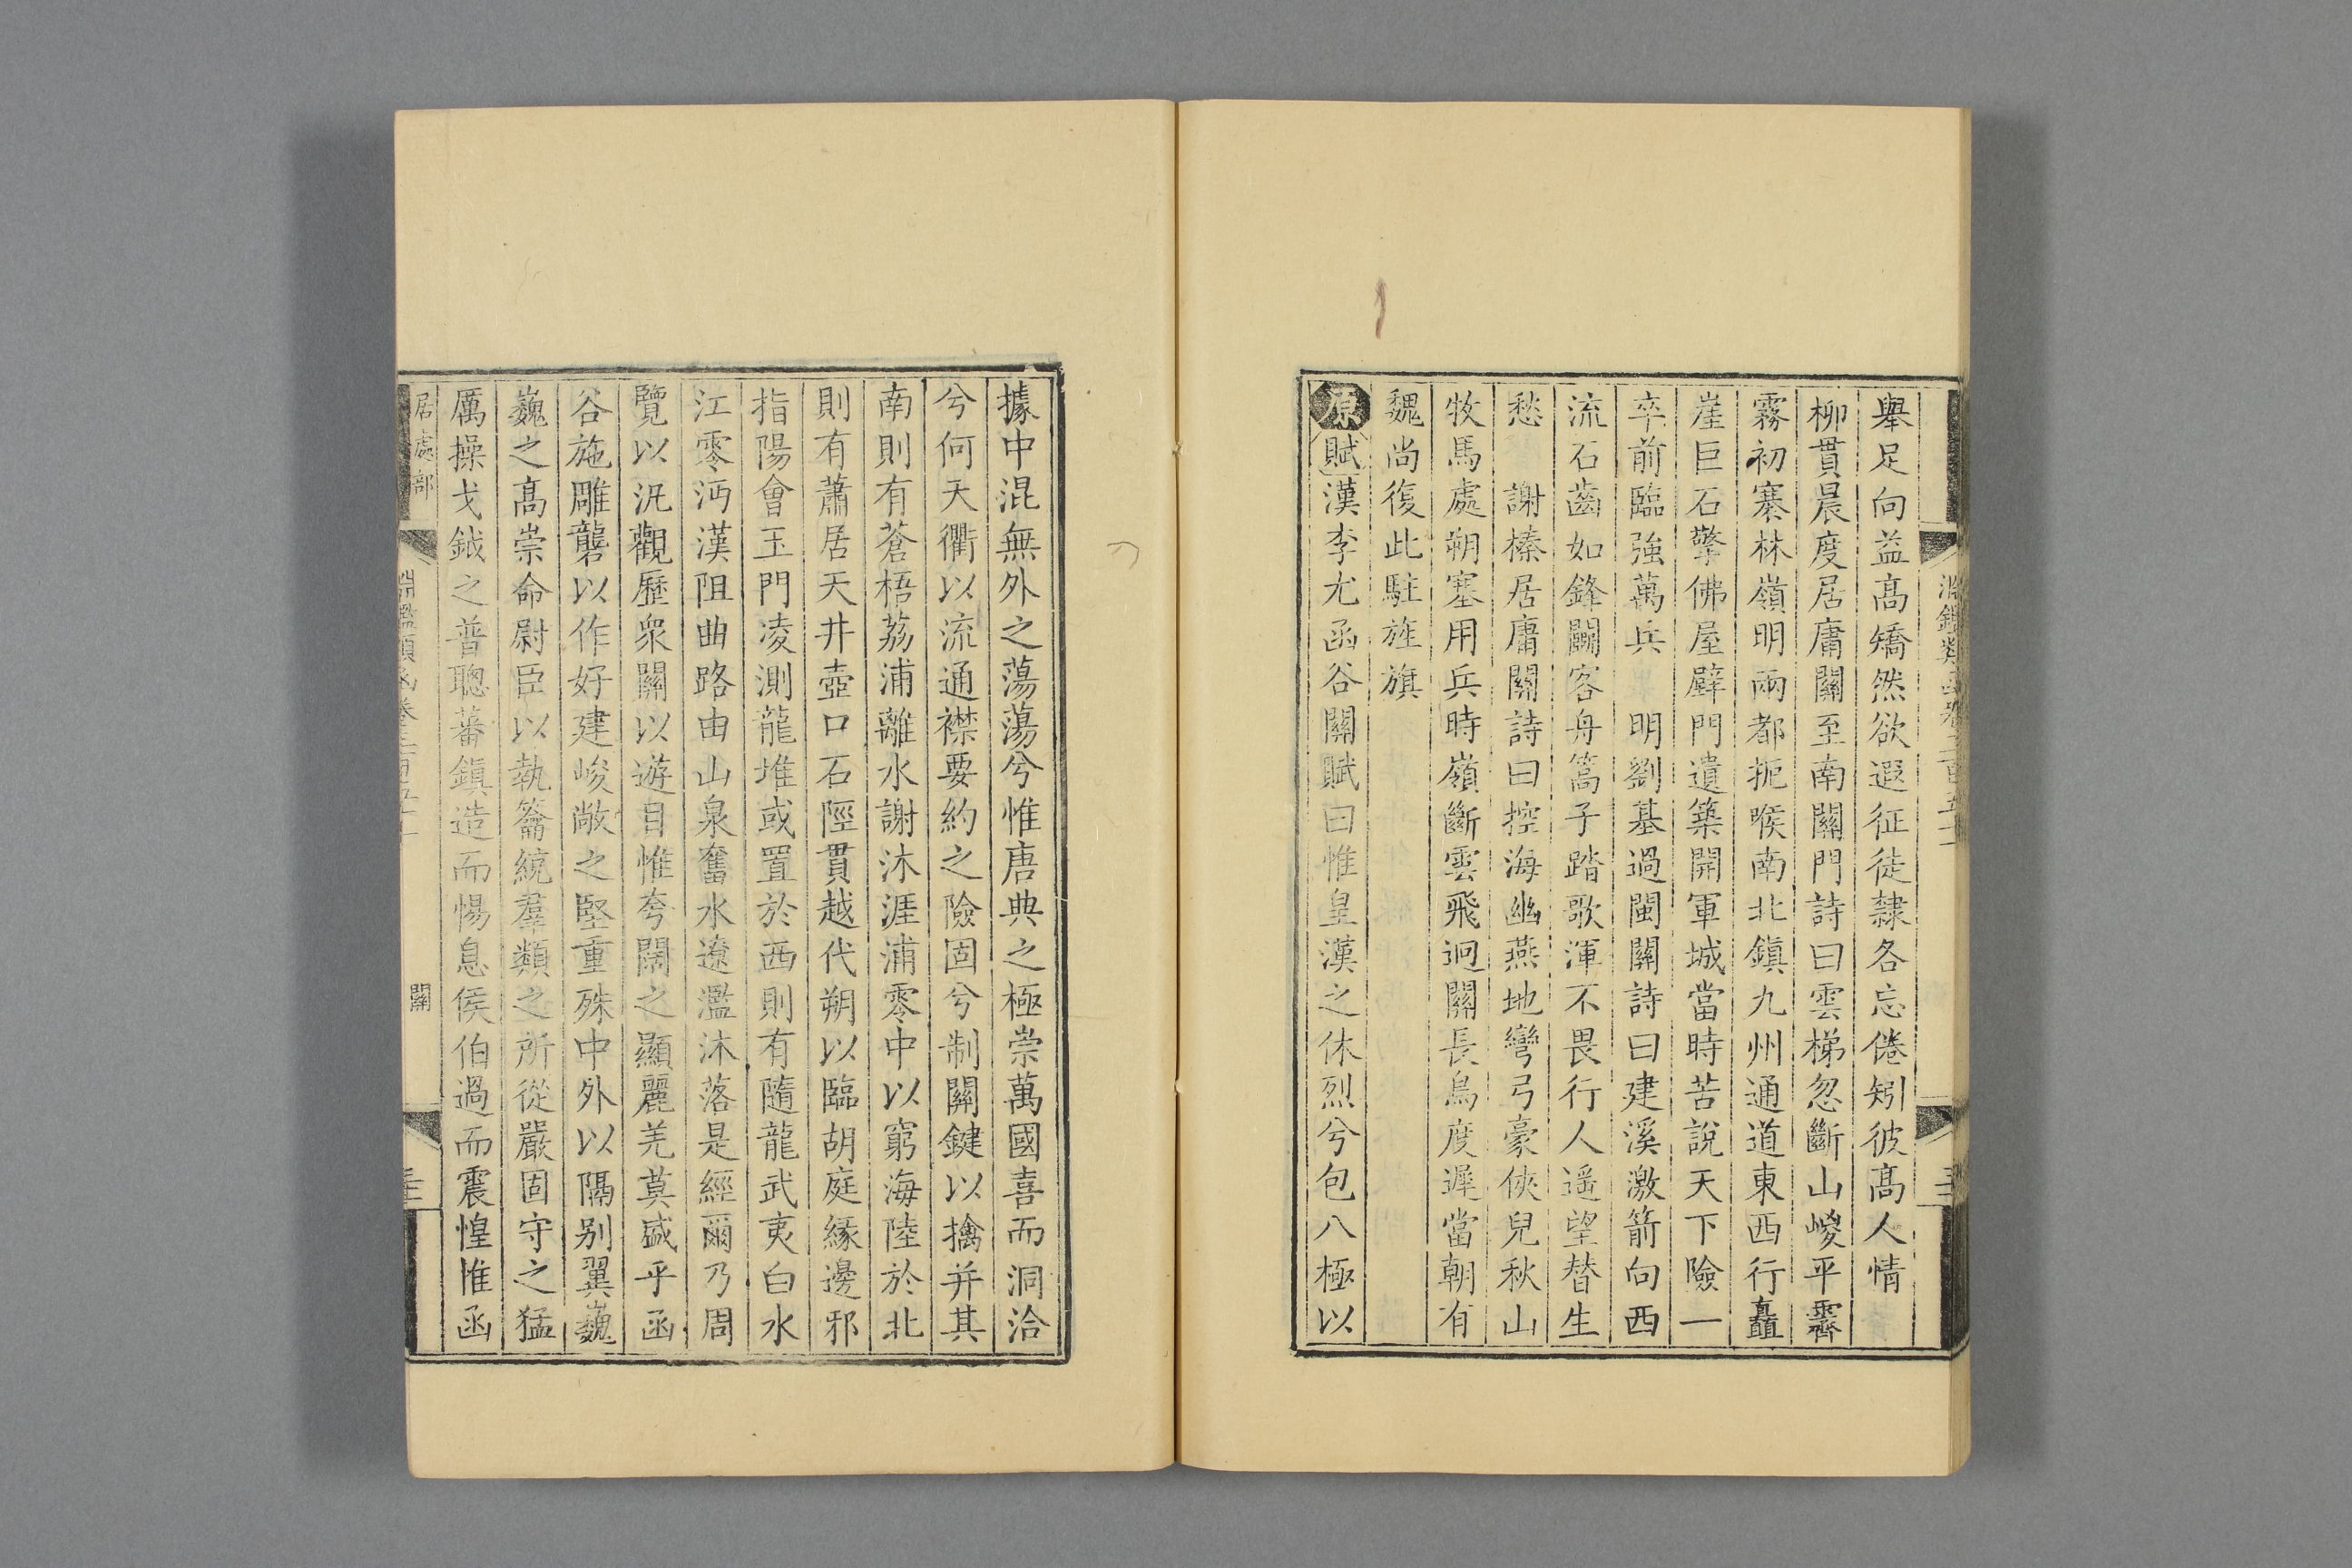 舉足向益髙矯然欲遐征徒隸各忘倦矧彼髙人情
柳貫晨度居庸關至南關門詩曰雲梯忽斷山㟅平霽
霧初褰林嶺明兩都扼喉南北鎮九州通道東西行矗
崖巨石擎佛屋辟門遺築開軍城當時苦說天下險一
卒前臨強萬兵　明劉基過閩關詩曰建溪激箭向西
流石齒如鋒鬭客舟篙子踏歌渾不畏行人遥望替生
愁　謝榛居庸關詩曰控海幽燕地彎弓豪俠兒秋山
牧馬處朔塞用兵時嶺斷雲飛迥關長鳥度遲當朝有
魏尚復此駐旌旗
原賦漢李尤函谷關賦曰惟皇漢之休烈兮包八極以
據中混無外之蕩蕩兮惟唐典之極崇萬國喜而洞洽
兮何天衢以流通襟要約之險固兮制關鍵以擒并其
南則有蒼梧荔浦離水謝沐涯浦零中以窮海陸於北
則有蕭居天井壺口石陘貫越代朔以臨胡庭緣邊邪
指陽會玉門凌測龍堆或置於西則有隨龍武夷白水
江零沔漢阻曲路由山泉奮水遼濫沐落是經爾乃周
覽以汎觀歷衆關以遊目惟夸闊之顯麗羌莫盛乎函
谷施雕礱以作好建峻敞之堅重殊中外以隔别翼巍
巍之髙崇命尉臣以執籥統羣類之所從嚴固守之猛
厲操戈鉞之普聰蕃鎮造而惕息侯伯過而震惶惟函
居處部　淵鑑類函卷三百五十　關